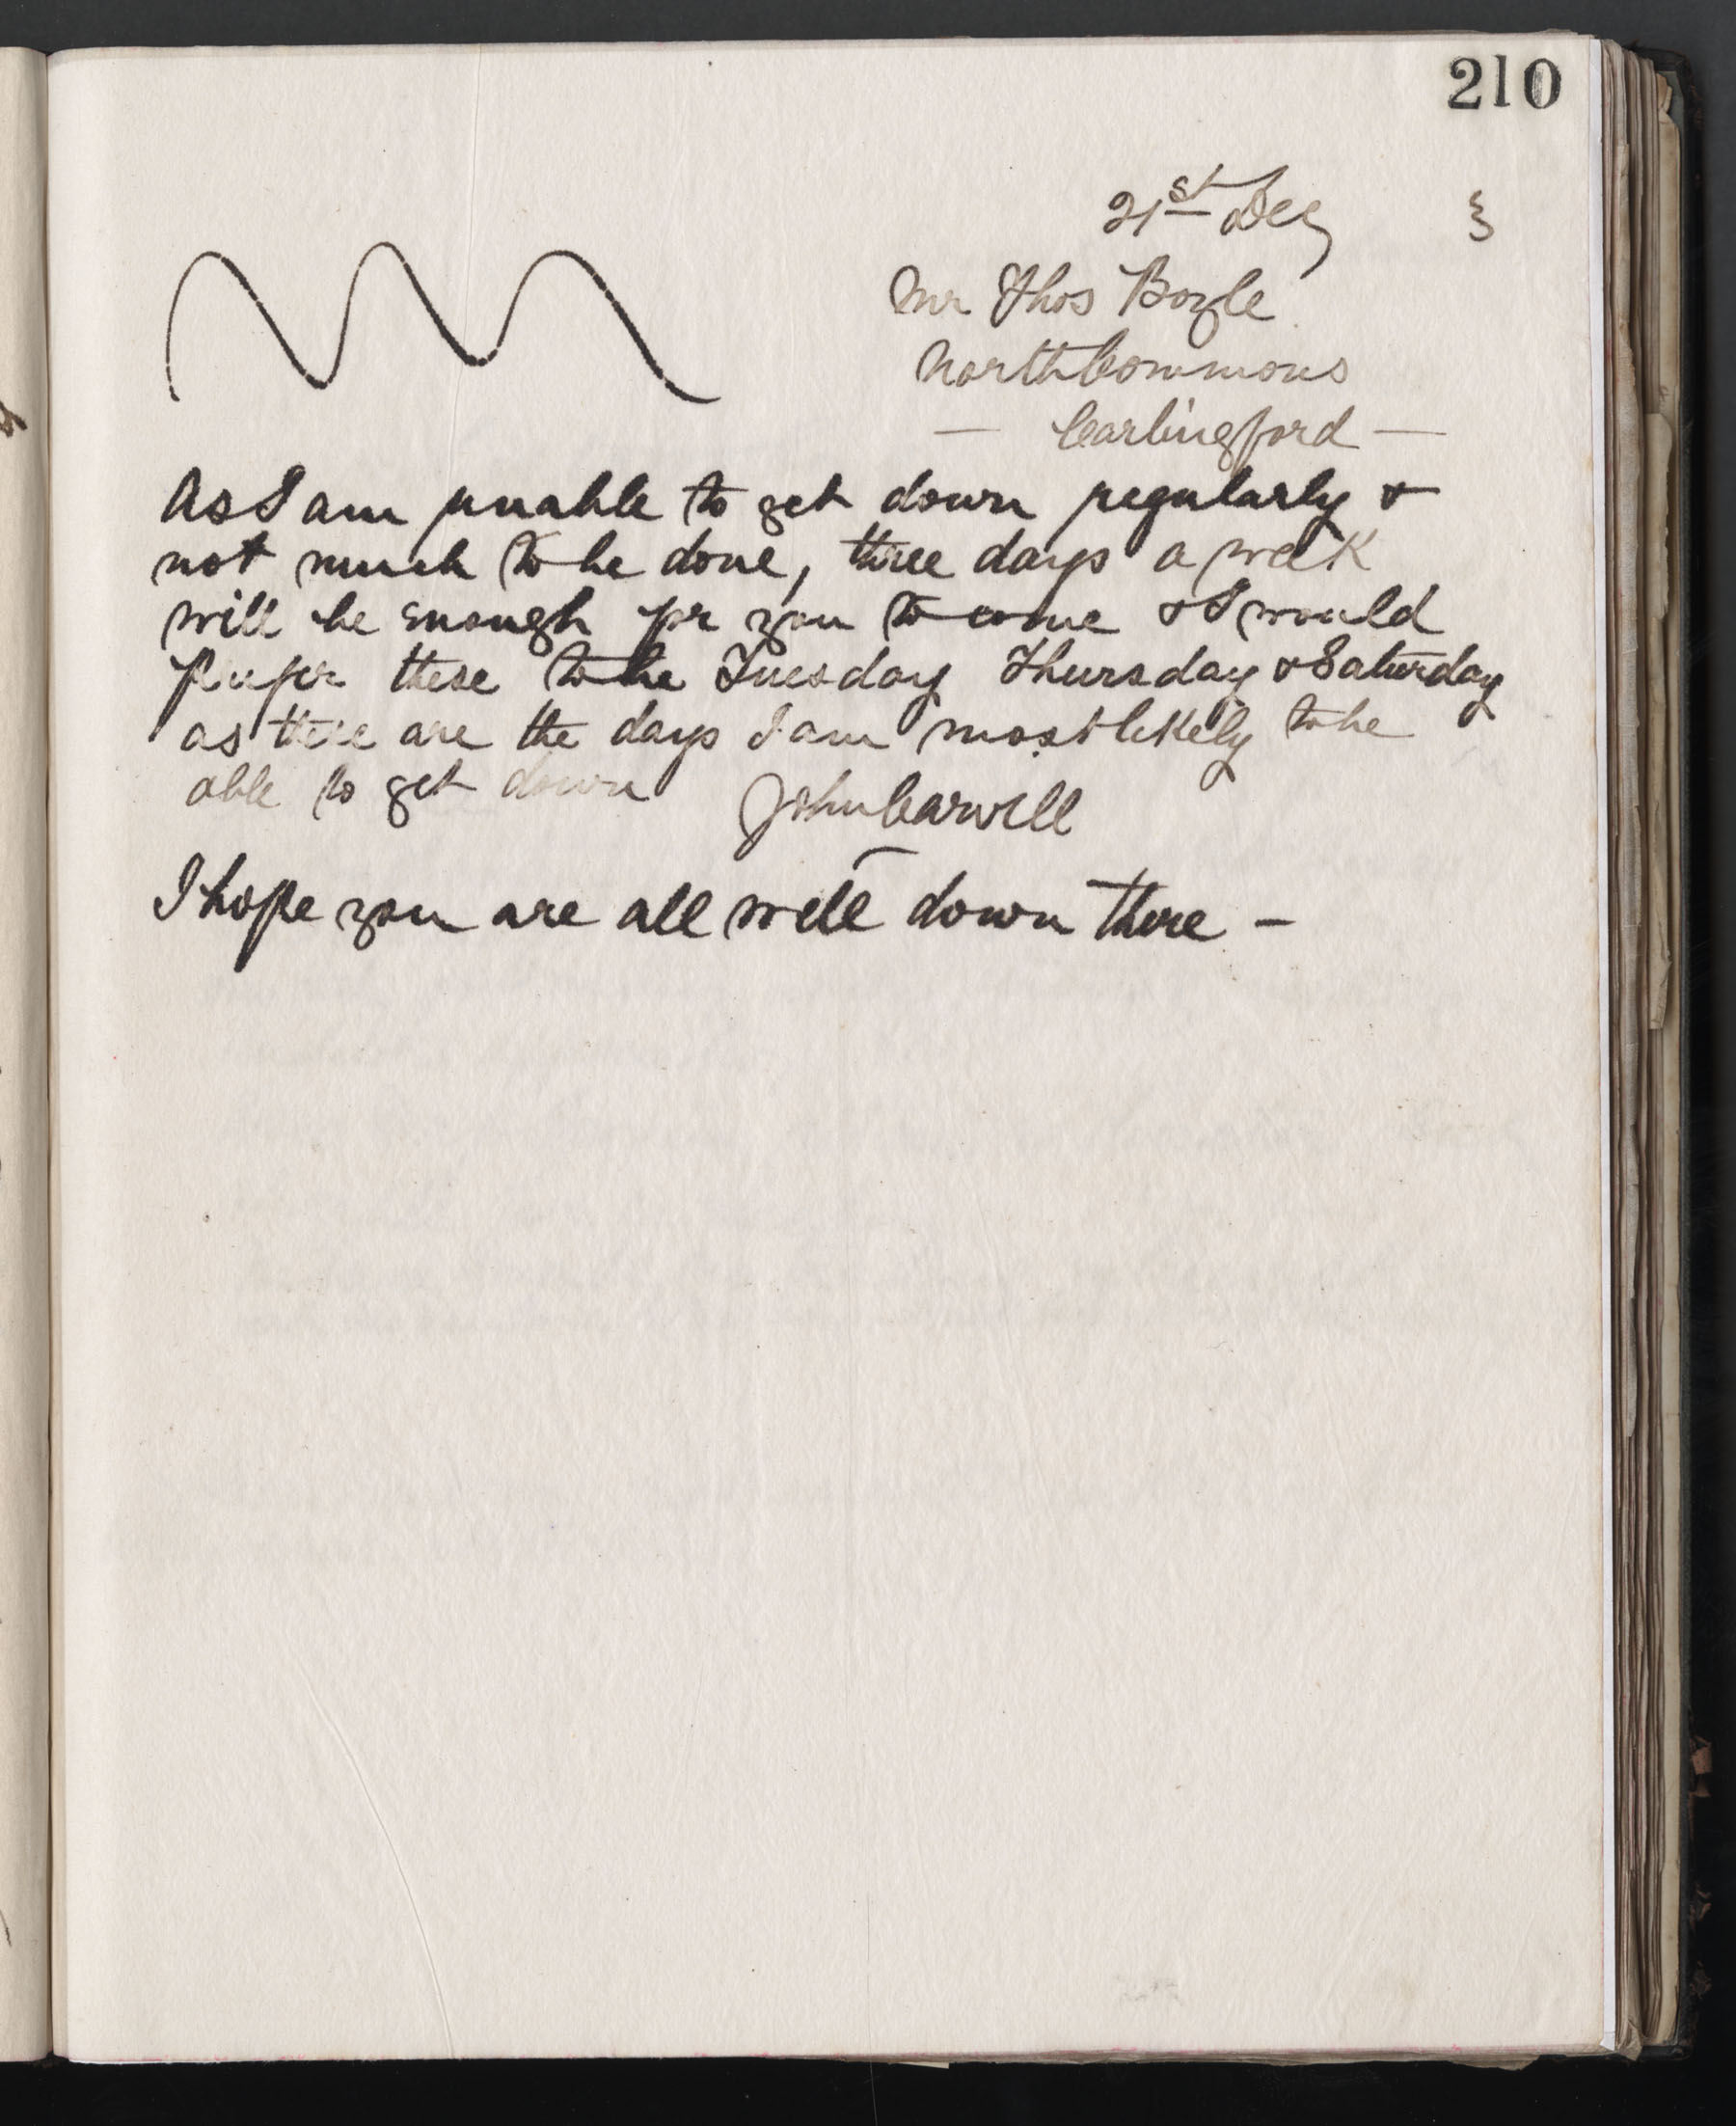 210
21st Dec 3
Mr Thos Boyle
North Commons
— Carlingford —
As I am unable to get down regularly &
not much to be done, three days a week
will be enough for you to come & I would
prefer these to be Tuesday Thursday & Saturday
as these are the days I am most likely to be
able to get down John Carvill
I hope you are all well down there —